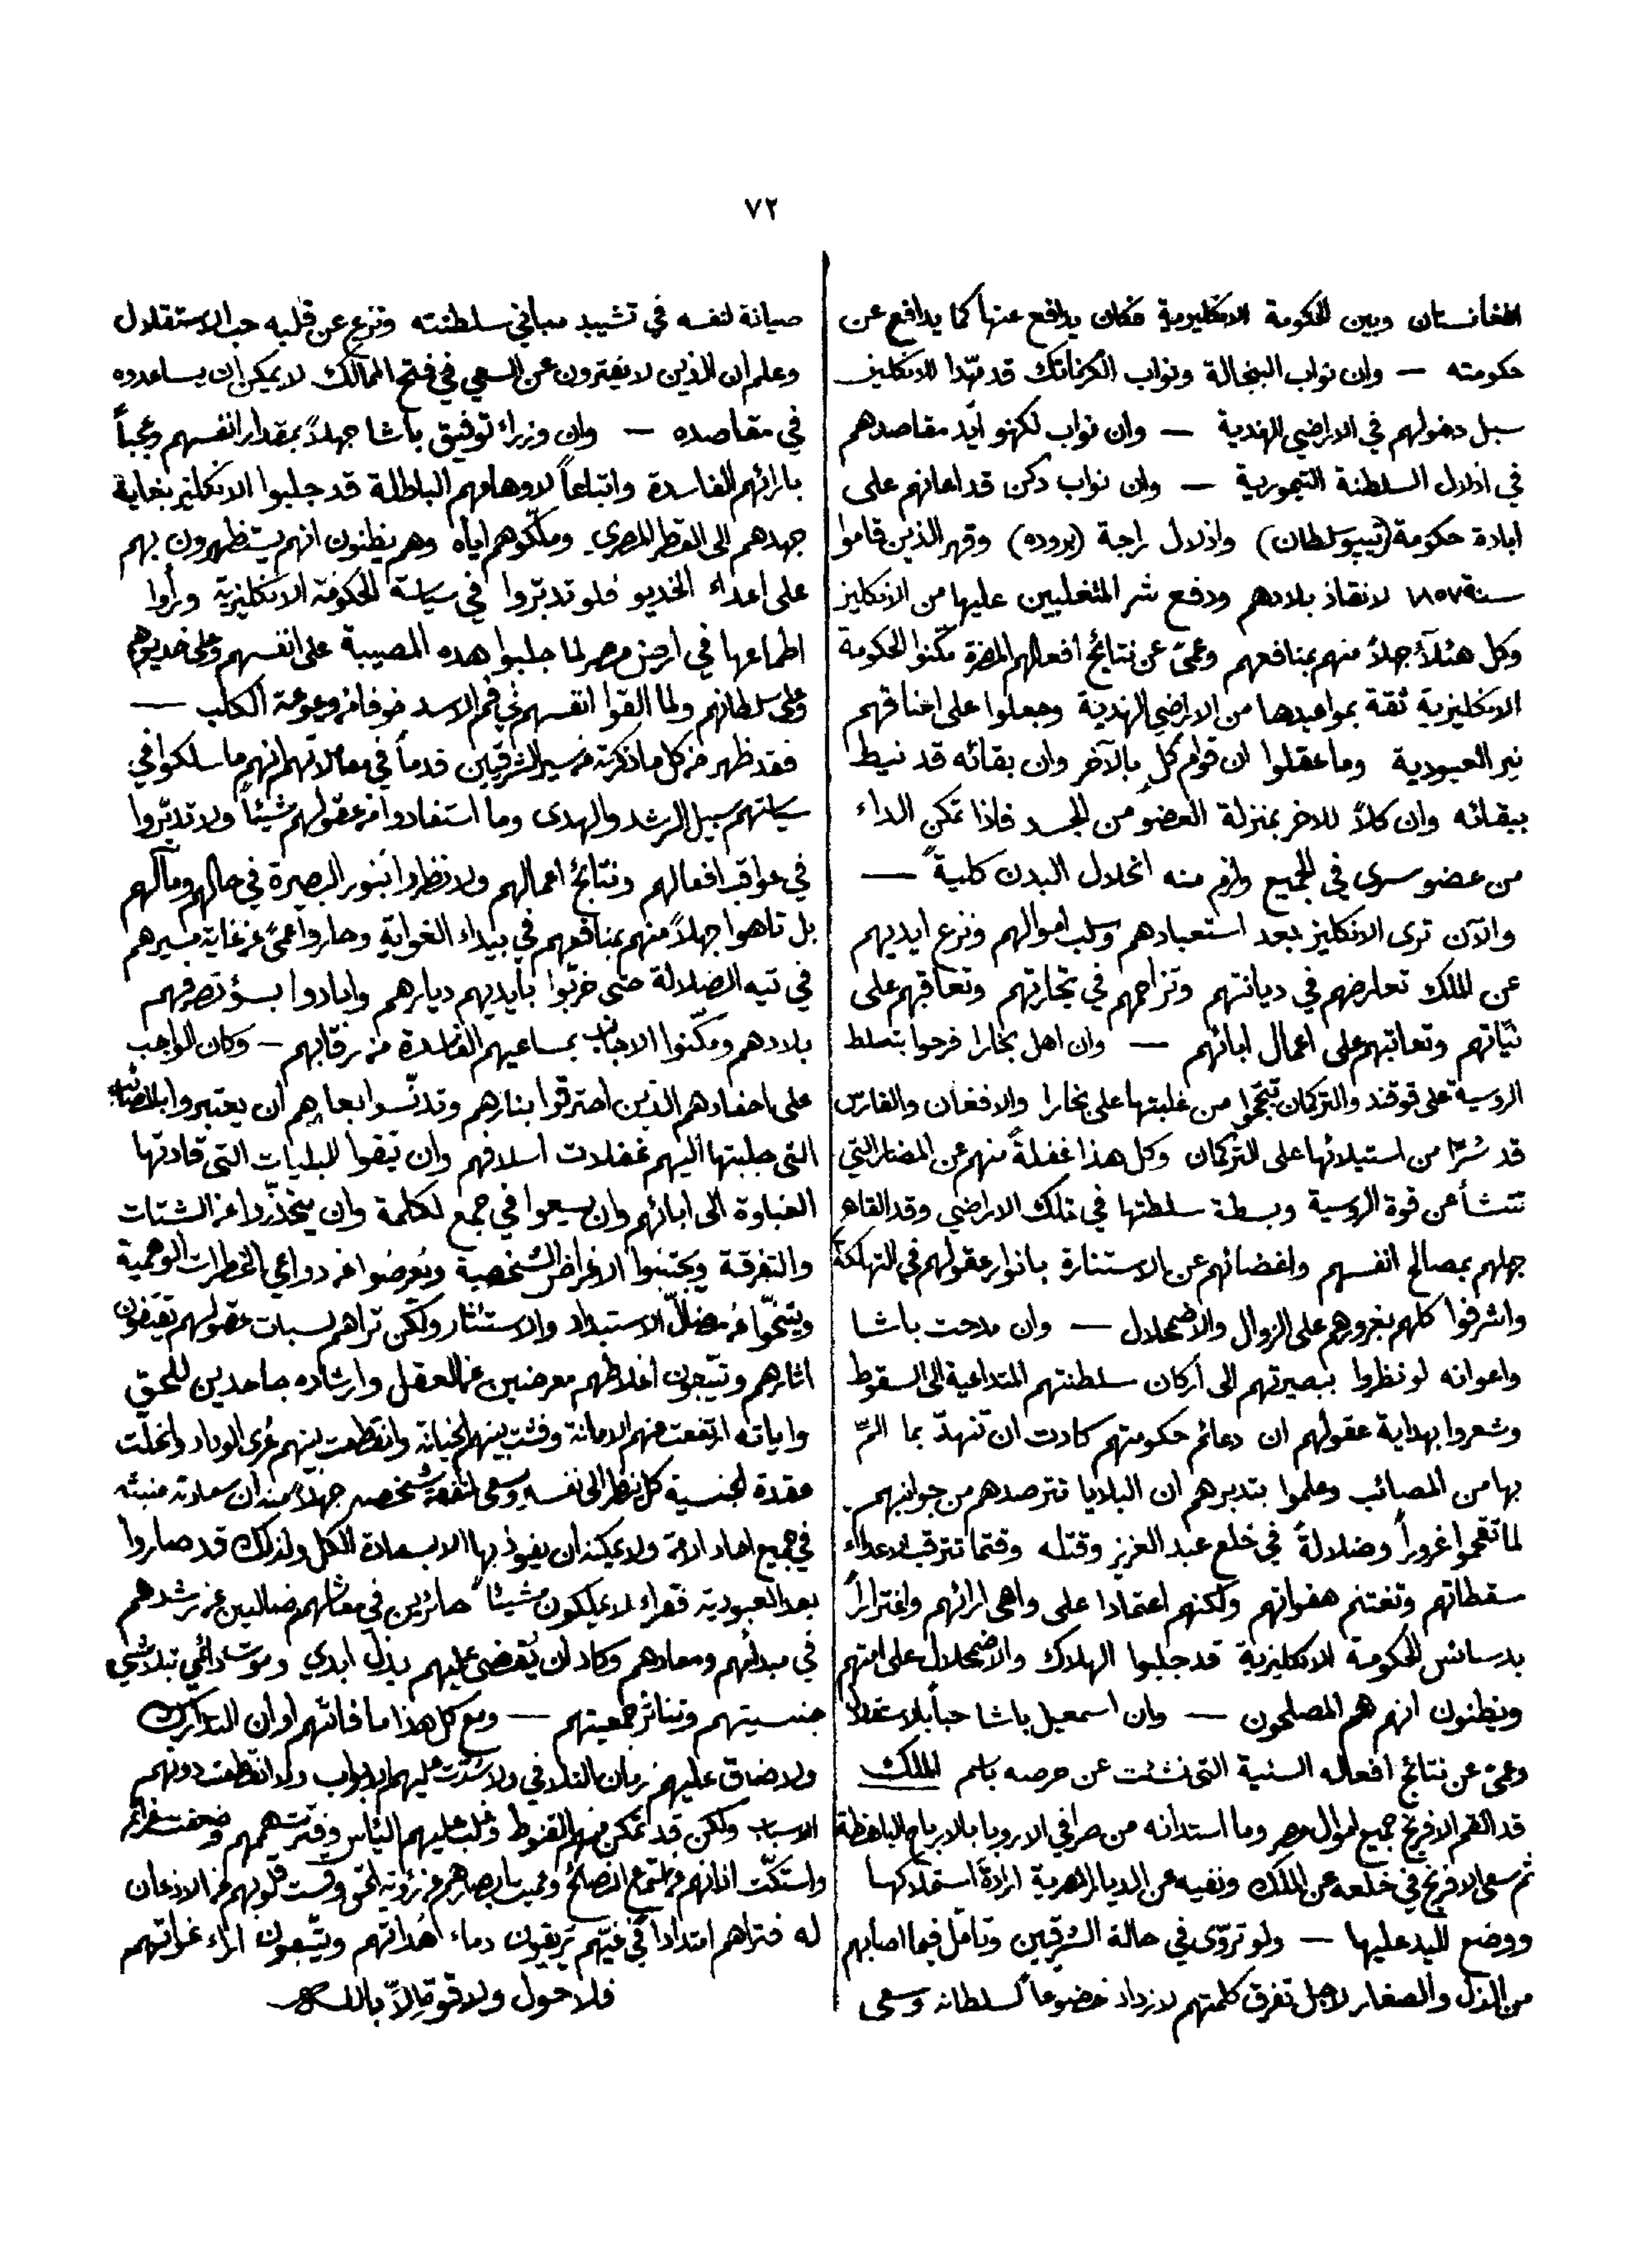 ٧٢
افغانستان وبين الحكومة الانكليزية فكان يدافع عنها كما يدافع عن
حكومته — وان نواب البنجالة ونواب الكرناتك قد مهّدا للانكليز
سبل دخولهم في الاراضي الهندية — وان نواب لكهنو ايّد مقاصدهم
في اذلال السلطنة التيمورية — وان نواب دكن قد اعانهم على
ابادة حكومة (تيپو سلطان) واذلال راجة (بروده) وقهر الذين قاموا
سنة ١٨٥٧ لانقاذ بلادهم ودفع شر المتغلبين عليها من الانكليز
وكل هئولآء جهلاً منهم بمنافعهم وعمىً عن نتائج افعالهم المضرة مكّنوا الحكومة
الانكليزية ثقة بمواعيدها من الاراضي الهندية وجعلوا على اعناقهم
نير العبودية وما عقلوا ان قوام كلٍ بالآخر وان بقائه قد نيط
ببقائه وان كلاً للاخر بمنزلة العضو من الجسد فاذا تمكن الداء
من عضو سرى في الجميع ولزم منه انحلال البدن كلية —
والآن ترى الانكليز بعد استعبادهم وسلب اموالهم ونزع ايديهم
عن الملك تعارضهم في ديانتهم وتزاحمهم في تجارتهم وتعاقبهم على
نيّاتهم وتعاتبهم على اعمال ابائهم — وان اهل بخارا فرحوا بتسلط
الروسية على قوقند والتركمان تبجّحوا من غلبتها على بخارا والافغان والفارس
قد سُرّا من استيلائها على التركمان وكل هذا غفلةً منهم عن المضار التي
تنشأ من قوة الروسية وبسطة سلطتها في تلك الاراضي وقد القاهم
جهلهم بمصالح انفسهم واغضائهم عن الاستنارة بانوار عقولهم في التهلكة
واشرفوا كلهم بغرورهم على الزوال والاضمحلال — وان مدحت باشا
واعوانه لو نظروا ببصيرتهم الى اركان سلطنتهم المتداعية الى السقوط
وشعروا بهداية عقولهم ان دعائم حكومتهم كادت ان تنهدّ بما المّ
بها من المصائب وعلموا بتدبرهم ان البلايا تترصدهم من جوانبهم
لما تقحموا غروراً وضلالةً في خلع عبد العزيز وقتله وقتما تترقب الاعداء
سقطاتهم وتغتنم هفواتهم ولكنهم اعتمادا على واهى ارائهم واغتراراً
بدسائس الحكومة الانكليزية قد جلبوا الهلاك والاضمحلال على امتهم
ويظنون انهم هم المصلحون — وان اسمعيل باشا حباً بالاستقلال
وعمىً عن نتائج افعاله السئية التى نشئت عن حرصه باسم الملك
قد القم الافرنج جميع اموال مصر وما استدانه من صرافي الاروبا بالارباح الباهظة
ثم سعى الافرنج في خلعه عن الملك ونفيه عن الديار المصرية ارادة استملاكها
ووضع اليد عليها — ولو تروّى في حالة الشرقيين وتأمل فيما اصابهم
من الذل والصغار لاجل تفرق كلمتهم لازداد خضوعاً لسلطانه وسعى
صيانة لنفسه في تشييد مبانى سلطنته ونزع عن قلبه حب الاستقلال
وعلم ان الذين لا يفترون عن السعي في فتح الممالك لا يمكن ان يساعدوه
في مقاصده — وان وزراء توفيق باشا جهلاً بمقدار انفسهم وعجباً
بارائهم الفاسدة واتباعاً لاوهامهم الباطلة قد جلبوا الانكليز بغاية
جهدهم الى القطر المصري وملّكوهم اياه وهم يظنون انهم يستظهرون بهم
على اعداء الخديو فلو تدبّروا في سياسة الحكومة الانكليزية ورأوا
اطماعها في ارض مصر لما جلبوا هذه المصيبة على انفسهم وعلى خديوهم
وعلى سلطانهم ولما القوا انفسهم في فم الاسد خوفا من وعوعة الكلب —
فقد ظهر من كل ما ذكرته من سير الشرقيين قدماً في معاملاتهم انهم ما سلكوا في
سياستهم سبيل الرشد والهدى وما استفادوا من عقولهم شيئاً ولا تدبّروا
في عواقب افعالهم ونتائج اعمالهم ولا نظروا بنور البصيرة في حالهم ومآلهم
بل تاهوا جهلاً منهم بمنافعهم في بيداء الغواية وحاروا عمىً عن غاية مسيرهم
في تيه الضلالة حتى خرّبوا بأيديهم ديارهم وابادوا بسؤ تصرفهم
بلادهم ومكّنوا الاجانب بمساعيهم الفاسدة من رقابهم — وكان الواجب
على احفادهم الذين احترقوا بنارهم وتدنّسوا بعارهم ان يعتبروا بالمصائب
التى جلبتها اليهم غفلات اسلافهم وان يتقوا البليات التى قادتها
الغباوة الى ابائهم وان يسعوا في جمع الكلمة وان يتحذّروا عن الشتات
والتفرقة ويجتنبوا الاغراض الشخصية ويُعرضوا عن دواعي الخطرات الوهمية
ويتنحّوا عن مضلّ الاستبداد والاستئثار ولكن تراهم لسبات عقولهم يقتفون
اثارهم ويتّبعون اغلاطهم معرضين عن العقل وارشاده جاحدين للحق
واياته ارتفعت منهم الامانة وفشت بينهم الخيانة وانقطعت بينهم عُرى الوداد وانحلّت
عقدة الجنسية كل نظر الى نفسه وسعى لمنفعة شخصه جهلاً منه ان سعادته منبثّه
في جميع احاد الامة ولا يمكنه ان يفوز بها الا بسعادة الكل ولذلك قد صاروا
بعد العبودية فقراء لا يملكون شيئاً حائرين في معاشهم ضالين عن رشدهم
في مبدأهم ومعادهم وكاد ان يُقضى عليهم بذل ابدي وموت دائمي بتلاشي
جنسيتهم وتناثر جمعيتهم — ومع كل هذا ما فاتهم اوان التدارك
ولا ضاق عليهم زمان التلافي ولا سُدّت عليهم الابواب ولا انقطعت دونهم
الاسباب ولكن قد تمكن منهم القنوط وغلب عليهم اليأس وفترت هممهم وضعفت عزائمهم
واستكّت اذانهم عن استماع النصائح وعميت ابصارهم عن رؤية الحق وقست قلوبهم عن الاذعان
له فتراهم امتداداً في غيّهم يريقون دماء هُداتهم ويتّبعون اراء غواتهم
فلا حول ولا قوة الّا بالله